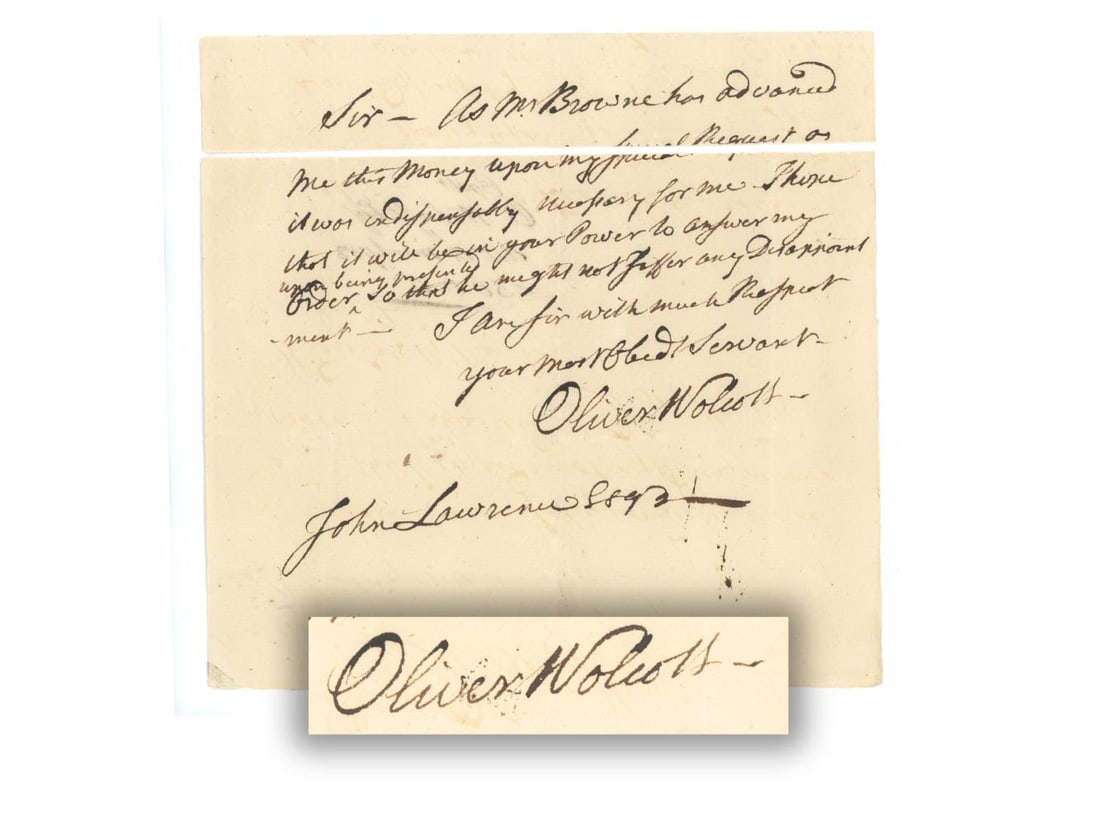 Sir — As Mr Browne has advanced
me this Money upon my special Request as
it was indispensably necessary for me I hope
that it will be in your Power to answer my
upon being presented
Order so that he might not suffer any Disappoint
-ment —
I am sir with much Respect
your most Obedt Servant -
Oliver Wolcott -
John Lawrence Esqr
Oliver Wolcott -